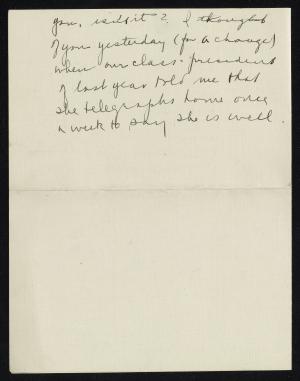 you, isn't it? I thought
of you yesterday (for a change)
when our class-president
of last year told me that
she telegraphs home once
a week to say she is well.